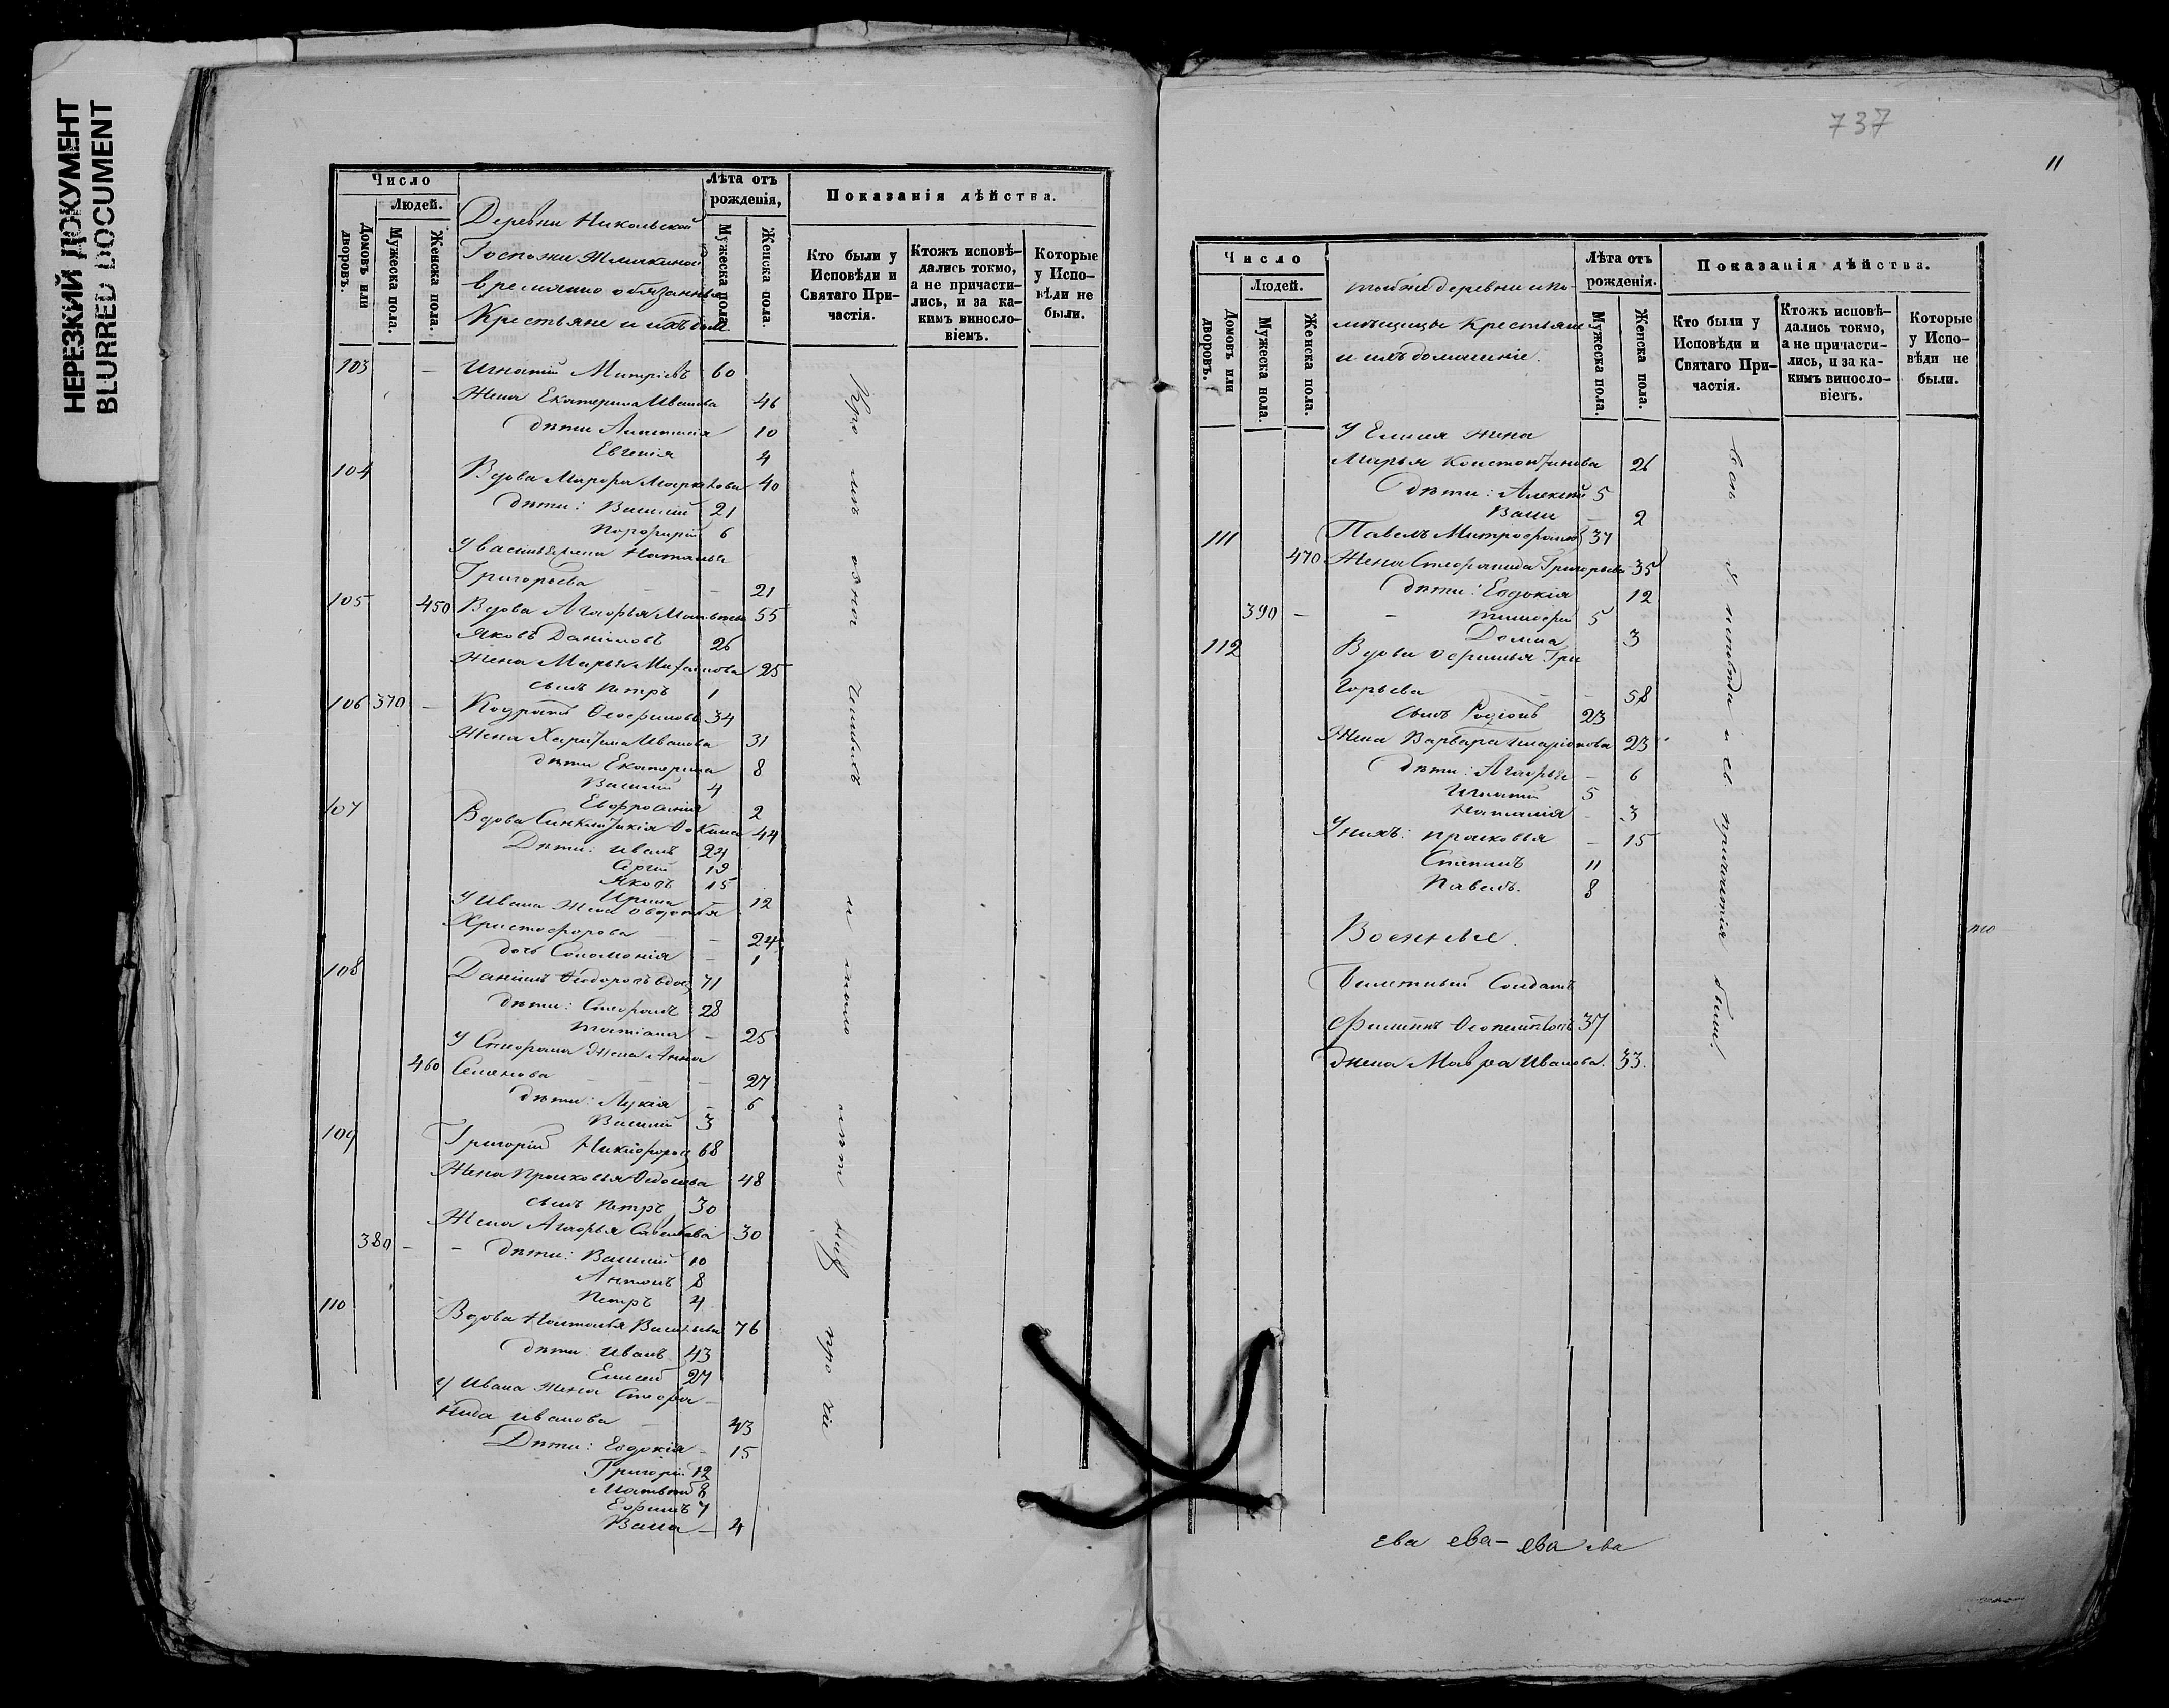 НЕРЕЗКИЙ ДОКУМЕНТ
BLURRED DOCUMENT
Число
Людей.
Домовъ или дворовъ.
Мужеска пола.
Женска пола.
Деревни Никольской
Госпожи
временно обязанные
Крестьяне и ихъ дом.
Лѣта отъ рожденія,
Мужеска пола.
Женска пола.
Показанія дѣйства.
Кто были у Исповѣди и Святаго При-
частія.
Ктожъ исповѣ-
дались токмо,
а не причасти-
лись, и за ка-
кимъ винословіемъ.
Которые у Испо-
вѣди не были.
103 — Игнатій Митріевъ 60
Жена Екатерина Иванова 46
дѣти Анастасія 10
Евгенія 4
104 Вдова Марфа Маркова 40
дѣти: Василій 21
Порфирій 6
У Василья жена Наталья
Григорьева — 21
105 450 Вдова Агафья 55
Яковъ Даніиловъ 26
Жена Марья Михайлова 25
сынъ Петръ 1
106 370 — 34
Жена Харитина Иванова 31
дѣти Екатерина 8
Василій 4
Евфросинія 2
107 Вдова Синклитикія 44
Дѣти: Иванъ 24
Сергій 19
Яковъ 15
Ирина — 12
У Ивана жена Авдотья
Христофорова — 24
дочь Соломонія — 1
108 Даніилъ Ѳеодоровъ вдов. 71
дѣти: Стефанъ 28
Татіана — 25
У Стефана жена Анна
460 Семенова — 27
дѣти: Лукія — 6
Василій 3
109 Григорій Никифоровъ 68
Жена Прасковья 48
сынъ Петръ 30
Жена Агафья Савельева 30
380 — — дѣти: Василій 10
Антонъ 8
Петръ 4
110 Вдова Наталья Васильева 76
дѣти: Иванъ 43
Елисей 27
У Ивана жена Стефа-
нида Иванова — 43
Дѣти: Евдокія — 15
Григорій 12
Матвѣй 8
Ефимъ 7
Васса — 4
737
11
Число
Людей.
Домовъ или дворовъ.
Мужеска пола.
Женска пола.
тойже деревни и по-
мѣщицы Крестьяне
и ихъ домашніе.
Лѣта отъ рожденія.
Мужеска пола.
Женска пола.
Показанія дѣйства.
Кто были у Исповѣди и Святаго При-
частія.
Ктожъ исповѣ-
дались токмо,
а не причасти-
лись, и за ка-
кимъ винословіемъ.
Которые у Испо-
вѣди не были.
У Елисея жена
Марья Константинова 26
дѣти: Алексѣй 5
Васса — 2
111 Павелъ Митрофановъ 37
470 Жена Стефанида Григорьева 35
дѣти: Евдокія 12
390 — — Тимофей 5
Домна 3
112 Вдова Ефимья Гри
горьева — 58
сынъ Родіонъ 23
Жена Варвара Иларіонова 23
дѣти: Агафья — 6
Игнатій 5
Наталія — 3
У нихъ: Прасковья — 15
Степанъ 11
Павелъ. 8
всѣ у исповѣди и св. причастія были.
Военные.
Билетный Солдатъ
Филиппъ 37
жена Мавра Иванова. 33.
ева ева— ева ева